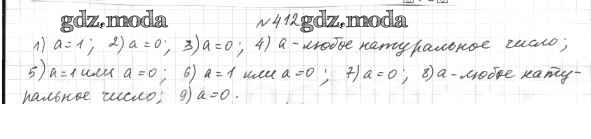 gdz.moda №412 gdz.moda
1) a=1; 2) a=0; 3) a=0; 4) a - любое натуральное число;
5) a=1 или a=0; 6) a=1 или a=0; 7) a=0; 8) a - любое нату-
ральное число; 9) a=0.